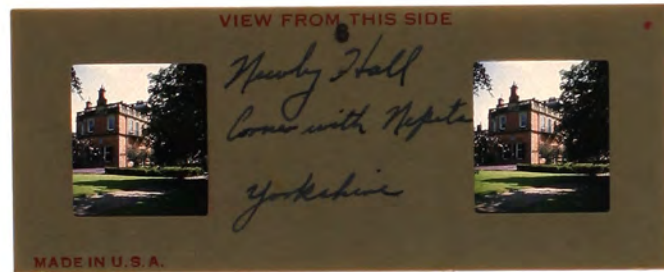 VIEW FROM THIS SIDE
8
Newby Hall
Corner with Nepeta
Yorkshire
MADE IN U.S.A.